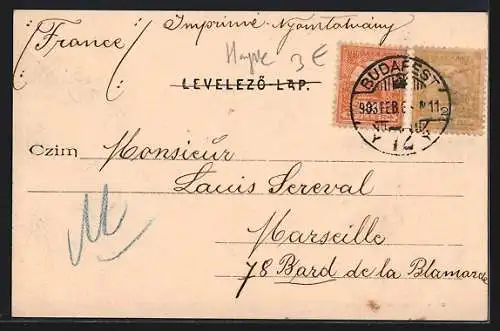 /France/
/Imprimé - Nyomtatvány/
3 €
LEVELEZŐ-LAP.
BUDAPEST
903 FEB 6
72
Czim
Monsieur
Louis Sereval
Marseille
78 Bard de la Blamarde
M